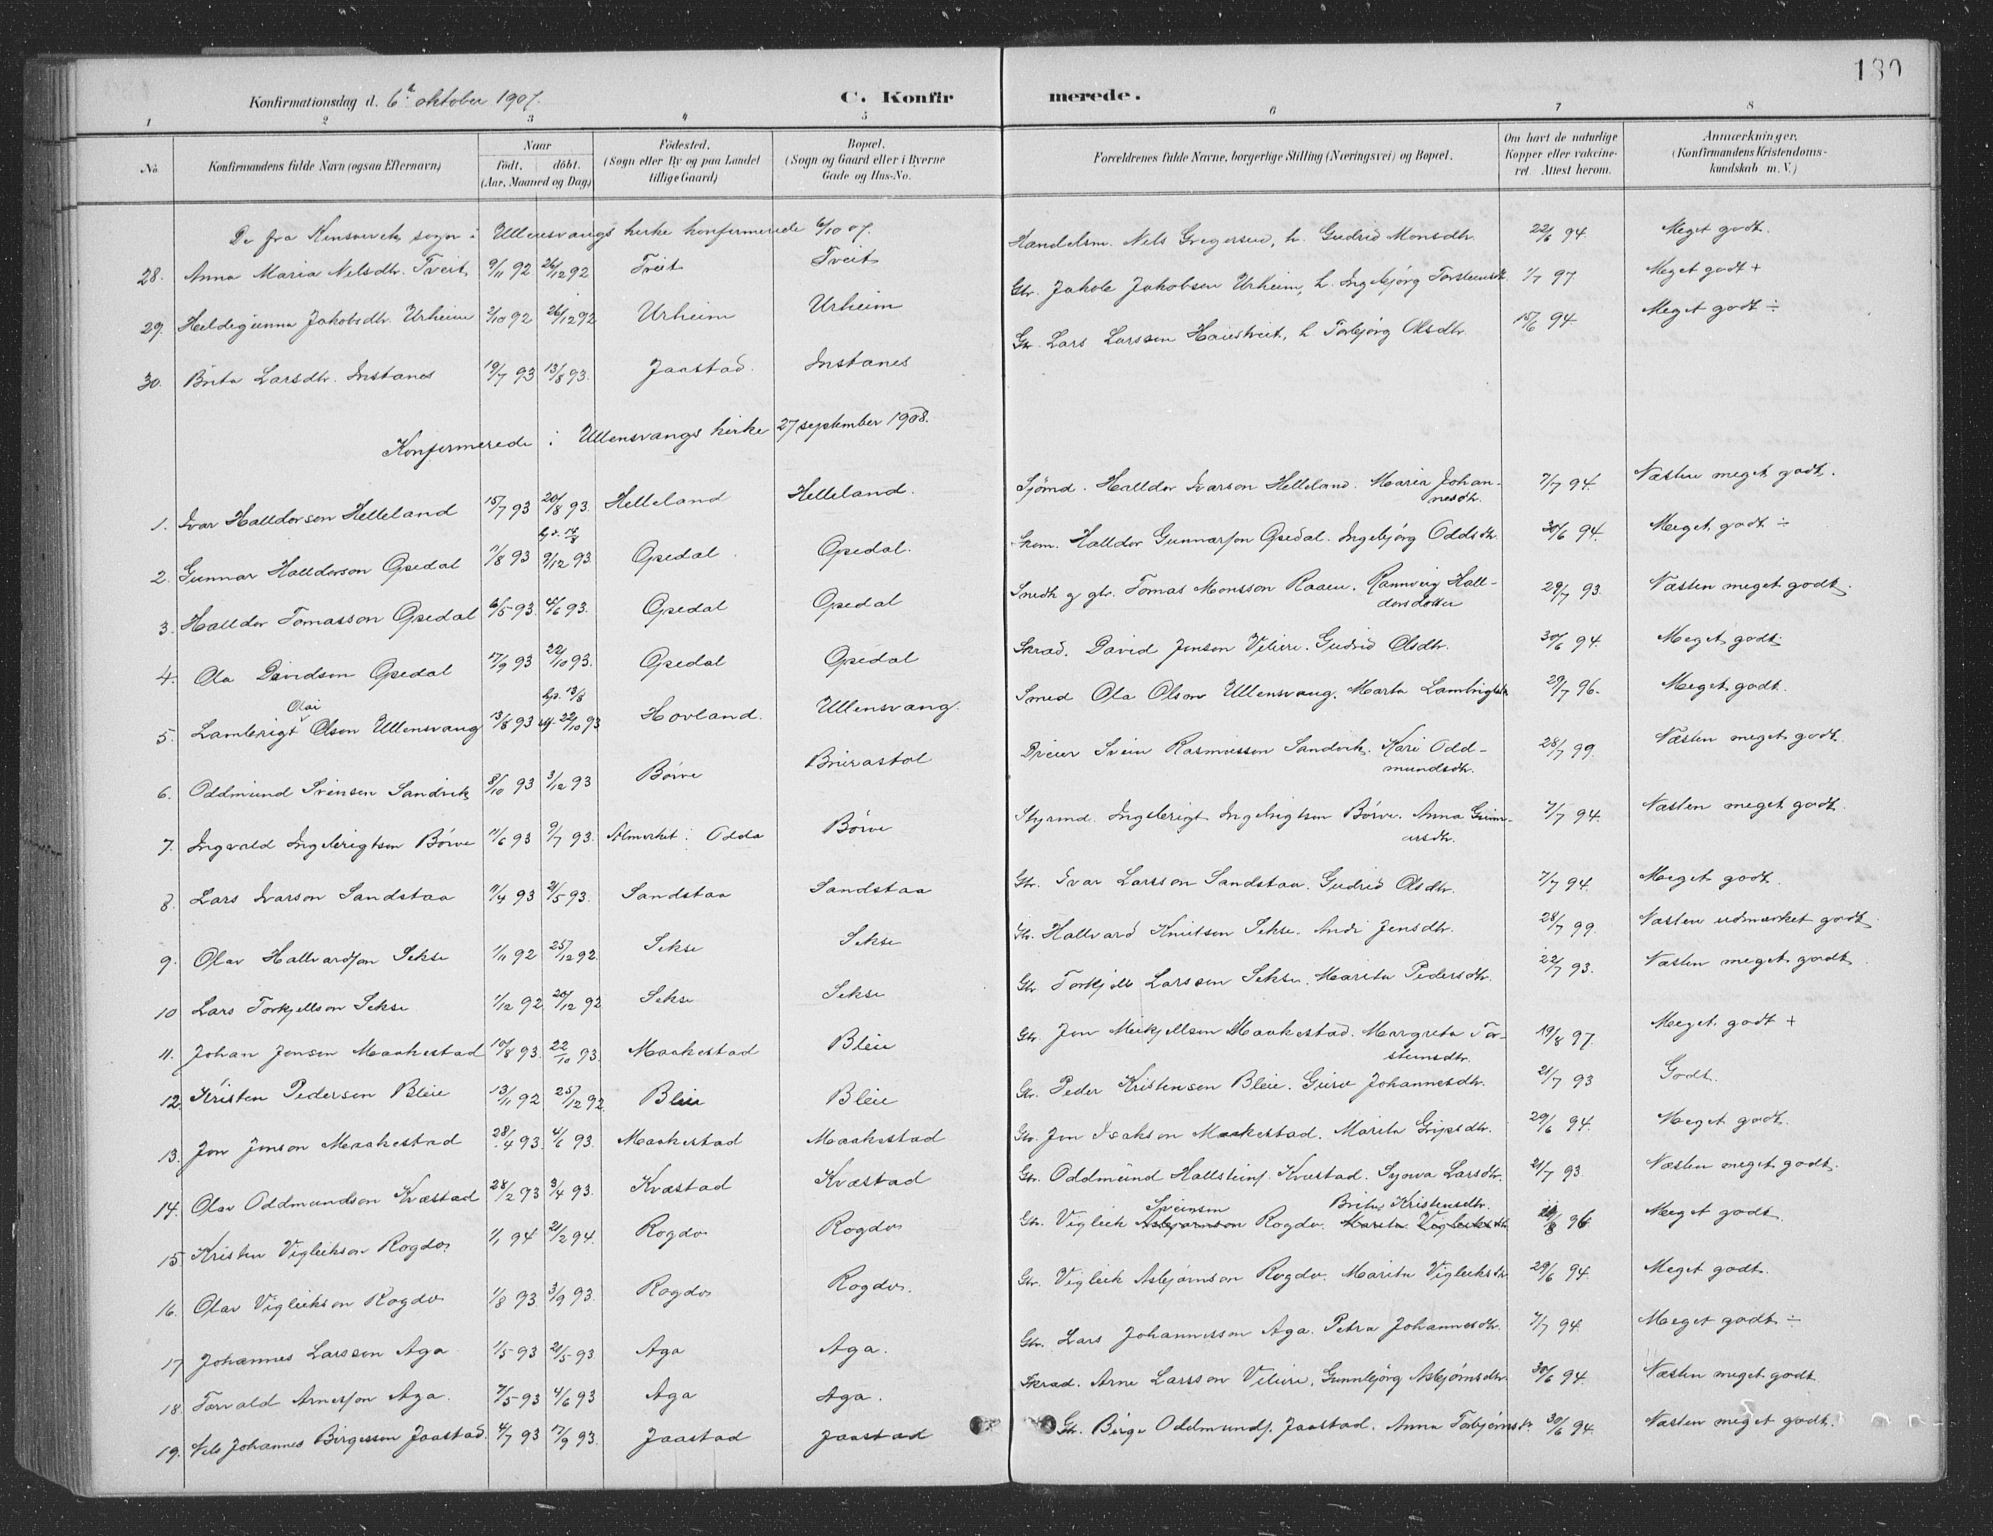 180
Konfirmationsdag d. 6te oktober 1907. C. Konfirmerede.
1 2 3 4 5 6 7 8
No Konfirmandens fulde Navn (ogsaa Efternavn) Naar født. døbt. (Aar, Maaned og Dag) Födested. (Sogn eller By og paa Landet tillige Gaard) Bopæl. (Sogn og Gaard eller i Byerne Gade og Hus-No. Forældrenes fulde Navne, borgerlige Stilling (Næringsvei) og Bopæl. Om havt de naturlige Kopper eller vaccineret Attest herom. Anmærkninger, (Konfirmandens Kristendomskundskab m. V.)
De fra Kinservik sogn i Ullensvangs kirke konfirmerede 6/10 07.
28. Anna Maria Nelsdtr. Tveit 9/11 92 26/12 92 Tveit Tveit Handelsm. Nels Gregersen, h. Gudrid Monsdtr. 22/6 94. Meget godt.
29. Heldigunna Jakobsdtr. Urheim 2/10 92 26/12 92 Urheim Urheim Gbr. Jakob Jakobsen Urheim, h. Ingebjørg Torsteinsdtr. 1/7 97 Meget godt +
30. Brita Larsdtr. Instanes 19/7 93 13/8 93. Jaastad. Instanes Gbr. Lars Larsson h. Torbjørg Olsdtr. 15/6 94. Meget godt ÷
Konfirmerede i Ullensvangs kirke 27 september 1908.
1. Ivar Halldorson Helleland 15/7 93 20/8 93. Helleland Helleland. Sjømd. Halldor Ivarson Helleland. Maria Johannesdtr. 7/7 94. Næsten meget godt.
2. Gunnar Halldorson Opedal 11/8 93 hjd. 14/8 9/12 93. Opedal. Opedal. Skom. Halldor Gunnarson Opedal. Ingebjørg Oddsdtr. 30/6 94. Meget godt ÷
3. Halldor Tomasson Opedal 6/5 93 4/6 93. Opedal Opedal Smedk og gbr. Tomas Monsson Raaen. Rannveig Halldorsdotter 29/7 93. Næsten meget godt.
4. Ola Davidson Opedal 17/9 93 22/10 93. Opedal Opedal Skræd. David Jonson Vileire. Gudrid Olsdtr. 30/6 94. Meget godt.
5. Lambrigt Olai Olson Ullensvang 13/8 93 hjd. 13/8 22/10 93 Hovland. Ullensvang. Smed Ola Olson Ullensvang. Marta Lambrigtsdtr. 29/7 96. Meget godt.
6. Oddmund Sveinson Sandvik 8/10 93 3/12 93 Børve Svein Rasmusson Sandvik. Kari Oddmundsdtr. 28/7 99. Næsten meget godt.
7. Ingvald Ingebrigtson Børve 11/6 93 9/7 93. i Odda Børve Styrmd. Ingebrigt Ingebrigtson Børve. Anna 7/7 94. Næsten meget godt.
8. Lars Ivarson Sandstaa 11/4 93 21/5 93. Sandstaa Sandstaa Gbr. Ivar Larsson Sandstaa. Gudrid Olsdtr. 7/7 94. Meget godt.
9. Olav Hallvardson Sekse 1/11 92 25/12 92. Sekse Sekse Gbr. Hallvard Knutson Sekse. Jensdtr. 28/7 99. Næsten udmærket godt
10 Lars Torkjellson Sekse 1/12 92. 20/12 92 Sekse Sekse Gbr. Torkjell Larsson Sekse. Marita Pedersdtr. 22/7 93. Næsten meget godt.
11. Johan Jonson Maakestad 10/8 93. 22/10 93. Maakestad Bleie Gbr. Jon Meikjellson Maakestad. Margreta Torsteinsdtr. 19/8 97. Meget godt +
12. Kristen Pederson Bleie 13/11 92 25/12 92. Bleie Bleie Gbr. Peder Kristenson Bleie. Guro Johannesdtr. 21/7 93 Godt.
13. Jon Jonson Maakestad 28/4 93. 4/6 93. Maakestad Maakestad Gbr. Jon Isakson Maakestad. Marita Gripsdtr. 29/6 94. Meget godt.
14. Olav Oddmundson Kvæstad 28/2 93 3/4 93. Kvæstad Kvæstad Gbr. Oddmund Hallsteins. Kvæstad. Synva Larsdtr. 21/7 93. Næsten meget godt.
15. Kristen Vigleikson Rogde 1/1 94 21/2 94. Rogde Rogde Gbr. Vigleik Sveinson Asbjørnson Rogde. Brita Kristensdtr. Marita Vigleiksdtr. 96. Meget godt.
16. Olav Vigleikson Rogde 1/8 93. 3/9 93. Rogde Rogde. Gbr. Vigleik Asbjørnson Rogde. Marita Vigleiksdtr. 29/6 94. Meget godt.
17 Johannes Larsson Aga 1/5 93 21/5 93 Aga Aga. Gbr. Lars Johannesson Aga. Petra Johannesdtr. 7/7 94. Meget godt ÷
18. Torvald Arneson Aga. 7/5 93 4/6 93 Aga Aga. Skræd. Arne Larsson Vileire. Gunnbjørg Asbjørnsdtr. 30/6 94. Næsten meget godt
19. Nels Johannes Birgesson Jaastad. 4/7 93 17/9 93. Jaastad Jaastad Gbr. Birge Oddmunds. Jaastad. Anna Torbjørnsdtr. 30/6 94. Næsten meget godt.